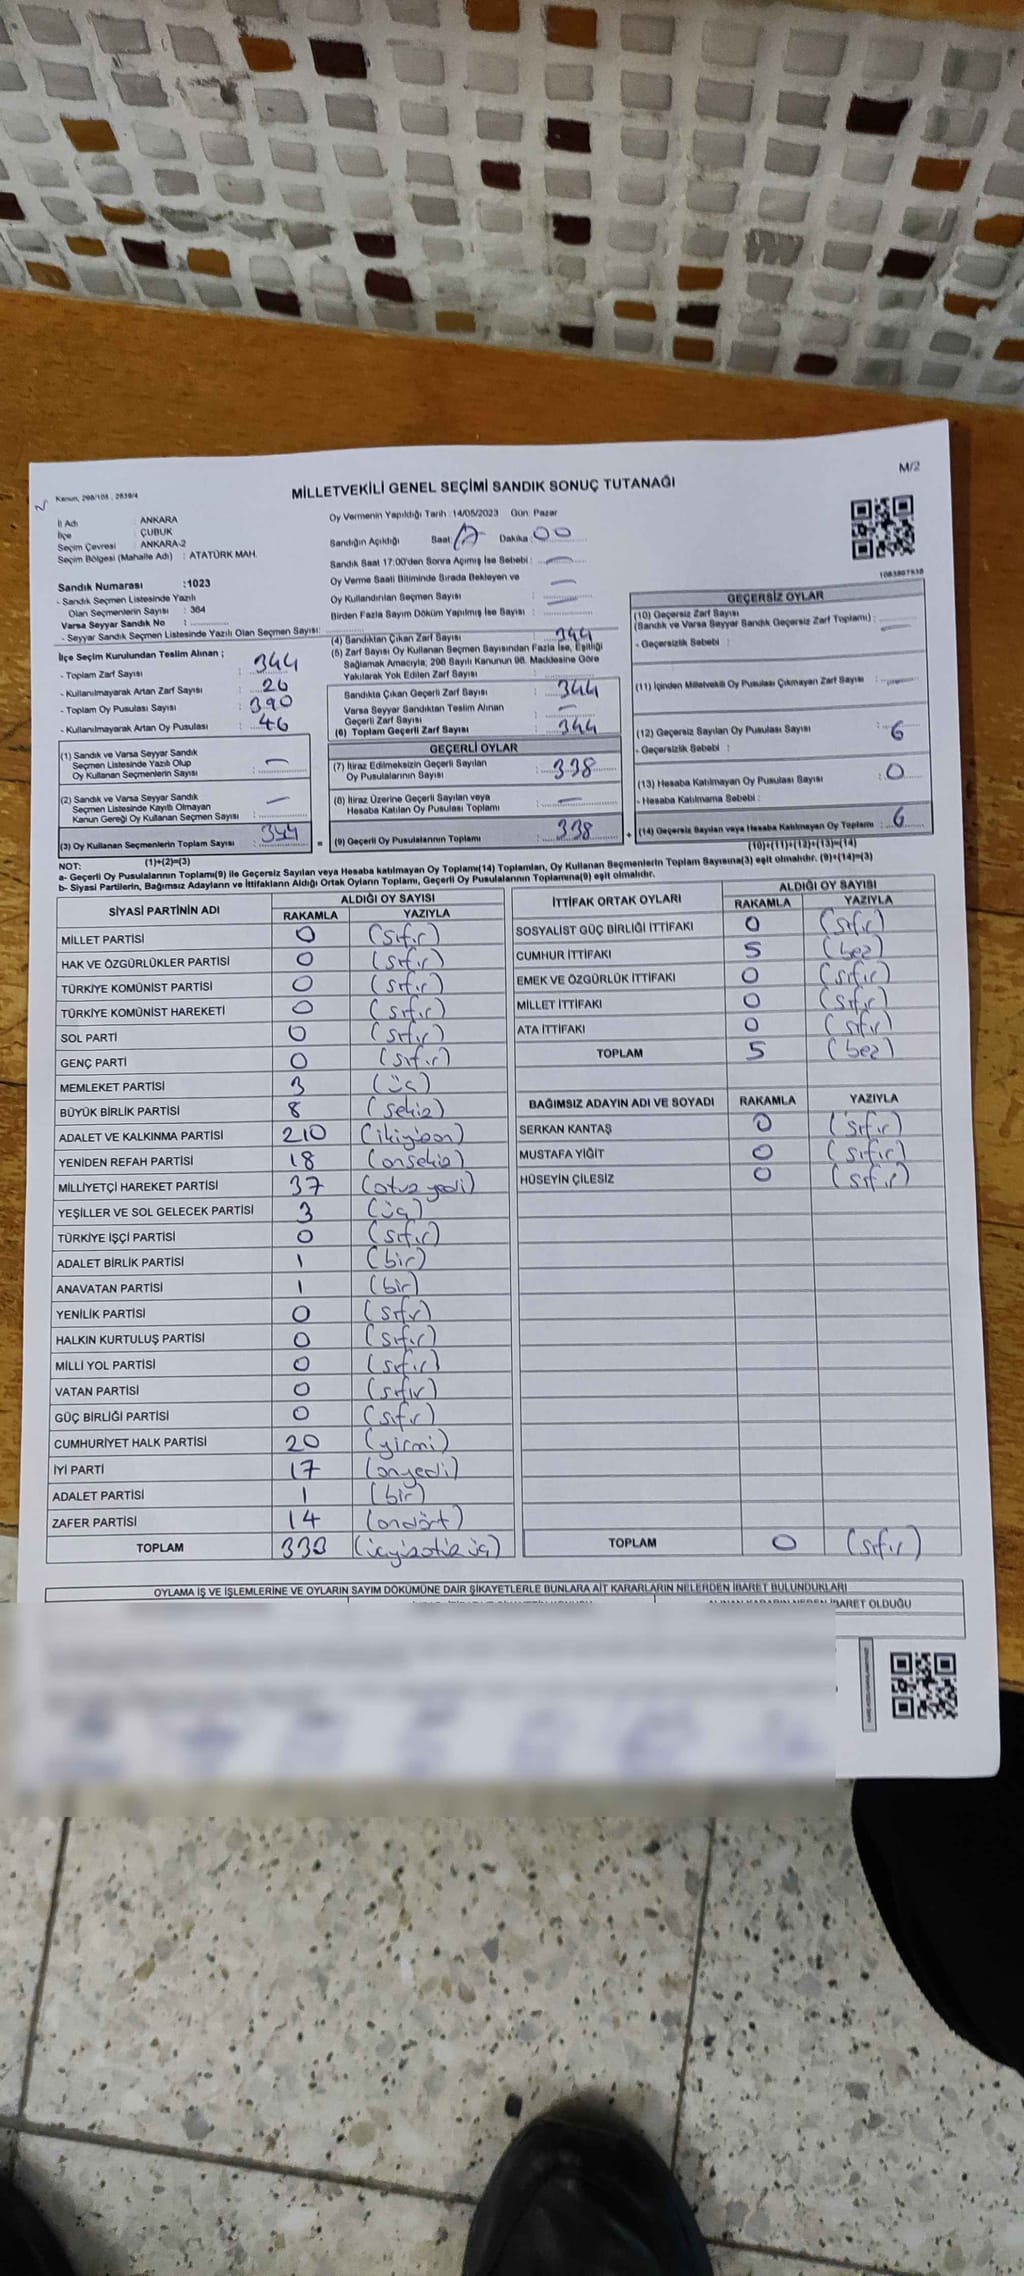 M/2
Kanun, 298/105 , 2839/4
MİLLETVEKİLİ GENEL SEÇİMİ SANDIK SONUÇ TUTANAĞI
İl Adı : ANKARA
İlçe : ÇUBUK
Seçim Çevresi : ANKARA-2
Seçim Bölgesi (Mahalle Adı) : ATATÜRK MAH.
Sandık Numarası :1023
- Sandık Seçmen Listesinde Yazılı
Olan Seçmenlerin Sayısı : 364
Varsa Seyyar Sandık No :
- Seyyar Sandık Seçmen Listesinde Yazılı Olan Seçmen Sayısı:
Oy Vermenin Yapıldığı Tarih :14/05/2023 Gün: Pazar
Sandığın Açıldığı Saat: Dakika: 00
Sandık Saat 17.00'den Sonra Açmış İse Sebebi : —
Oy Verme Saati Bitiminde Sırada Bekleyen ve
Oy Kullandırılan Seçmen Sayısı : —
Birden Fazla Sayım Döküm Yapılmış İse Sayısı : —
1083807538
İlçe Seçim Kurulundan Teslim Alınan ;
- Toplam Zarf Sayısı : 344
- Kullanılmayarak Artan Zarf Sayısı : 26
- Toplam Oy Pusulası Sayısı : 390
- Kullanılmayarak Artan Oy Pusulası : 46
(1) Sandık ve Varsa Seyyar Sandık
Seçmen Listesinde Yazılı Olup
Oy Kullanan Seçmenlerin Sayısı : —
(2) Sandık ve Varsa Seyyar Sandık
Seçmen Listesinde Kayıtlı Olmayan
Kanun Gereği Oy Kullanan Seçmen Sayısı : —
(3) Oy Kullanan Seçmenlerin Toplam Sayısı : 344
(1)+(2)=(3)
(4) Sandıktan Çıkan Zarf Sayısı : 344
(5) Zarf Sayısı Oy Kullanan Seçmen Sayısından Fazla İse, Eşitliği
Sağlamak Amacıyla; 298 Sayılı Kanunun 98. Maddesine Göre
Yakılarak Yok Edilen Zarf Sayısı :
Sandıkta Çıkan Geçerli Zarf Sayısı : 344
Varsa Seyyar Sandıktan Teslim Alınan
Geçerli Zarf Sayısı : —
(6) Toplam Geçerli Zarf Sayısı : 344
GEÇERLİ OYLAR
(7) İtiraz Edilmeksizin Geçerli Sayılan
Oy Pusulalarının Sayısı : 338
(8) İtiraz Üzerine Geçerli Sayılan veya
Hesaba Katılan Oy Pusulası Toplamı : —
= (9) Geçerli Oy Pusulalarının Toplamı : 338 +
GEÇERSİZ OYLAR
(10) Geçersiz Zarf Sayısı
(Sandık ve Varsa Seyyar Sandık Geçersiz Zarf Toplamı) : —
- Geçersizlik Sebebi :
(11) İçinden Milletvekili Oy Pusulası Çıkmayan Zarf Sayısı : —
(12) Geçersiz Sayılan Oy Pusulası Sayısı : 6
- Geçersizlik Sebebi :
(13) Hesaba Katılmayan Oy Pusulası Sayısı : 0
- Hesaba Katılmama Sebebi :
(14) Geçersiz Sayılan veya Hesaba Katılmayan Oy Toplamı : 6
(10)+(11)+(12)+(13)=(14)
NOT:
a- Geçerli Oy Pusulalarının Toplamı(9) ile Geçersiz Sayılan veya Hesaba katılmayan Oy Toplamı(14) Toplamları, Oy Kullanan Seçmenlerin Toplam Sayısına(3) eşit olmalıdır. (9)+(14)=(3)
b- Siyasi Partilerin, Bağımsız Adayların ve İttifakların Aldığı Ortak Oyların Toplamı, Geçerli Oy Pusulalarının Toplamına(9) eşit olmalıdır.
SİYASİ PARTİNİN ADI ALDIĞI OY SAYISI
RAKAMLA YAZIYLA
MİLLET PARTİSİ 0 (sıfır)
HAK VE ÖZGÜRLÜKLER PARTİSİ 0 (sıfır)
TÜRKİYE KOMÜNİST PARTİSİ 0 (sıfır)
TÜRKİYE KOMÜNİST HAREKETİ 0 (sıfır)
SOL PARTİ 0 (sıfır)
GENÇ PARTİ 0 (sıfır)
MEMLEKET PARTİSİ 3 (üç)
BÜYÜK BİRLİK PARTİSİ 8 (sekiz)
ADALET VE KALKINMA PARTİSİ 210 (ikiyüzon)
YENİDEN REFAH PARTİSİ 18 (onsekiz)
MİLLİYETÇİ HAREKET PARTİSİ 37 (otuz yedi)
YEŞİLLER VE SOL GELECEK PARTİSİ 3 (üç)
TÜRKİYE İŞÇİ PARTİSİ 0 (sıfır)
ADALET BİRLİK PARTİSİ 1 (bir)
ANAVATAN PARTİSİ 1 (bir)
YENİLİK PARTİSİ 0 (sıfır)
HALKIN KURTULUŞ PARTİSİ 0 (sıfır)
MİLLİ YOL PARTİSİ 0 (sıfır)
VATAN PARTİSİ 0 (sıfır)
GÜÇ BİRLİĞİ PARTİSİ 0 (sıfır)
CUMHURİYET HALK PARTİSİ 20 (yirmi)
İYİ PARTİ 17 (onyedi)
ADALET PARTİSİ 1 (bir)
ZAFER PARTİSİ 14 (ondört)
TOPLAM 333 (üçyüzotuz üç)
İTTİFAK ORTAK OYLARI ALDIĞI OY SAYISI
RAKAMLA YAZIYLA
SOSYALİST GÜÇ BİRLİĞİ İTTİFAKI 0 (sıfır)
CUMHUR İTTİFAKI 5 (beş)
EMEK VE ÖZGÜRLÜK İTTİFAKI 0 (sıfır)
MİLLET İTTİFAKI 0 (sıfır)
ATA İTTİFAKI 0 (sıfır)
TOPLAM 5 (beş)
BAĞIMSIZ ADAYIN ADI VE SOYADI RAKAMLA YAZIYLA
SERKAN KANTAŞ 0 (sıfır)
MUSTAFA YİĞİT 0 (sıfır)
HÜSEYİN ÇİLESİZ 0 (sıfır)
TOPLAM 0 (sıfır)
OYLAMA İŞ VE İŞLEMLERİNE VE OYLARIN SAYIM DÖKÜMÜNE DAİR ŞİKAYETLERLE BUNLARA AİT KARARLARIN NELERDEN İBARET BULUNDUKLARI
ALINAN KARARIN NEDEN İBARET OLDUĞU